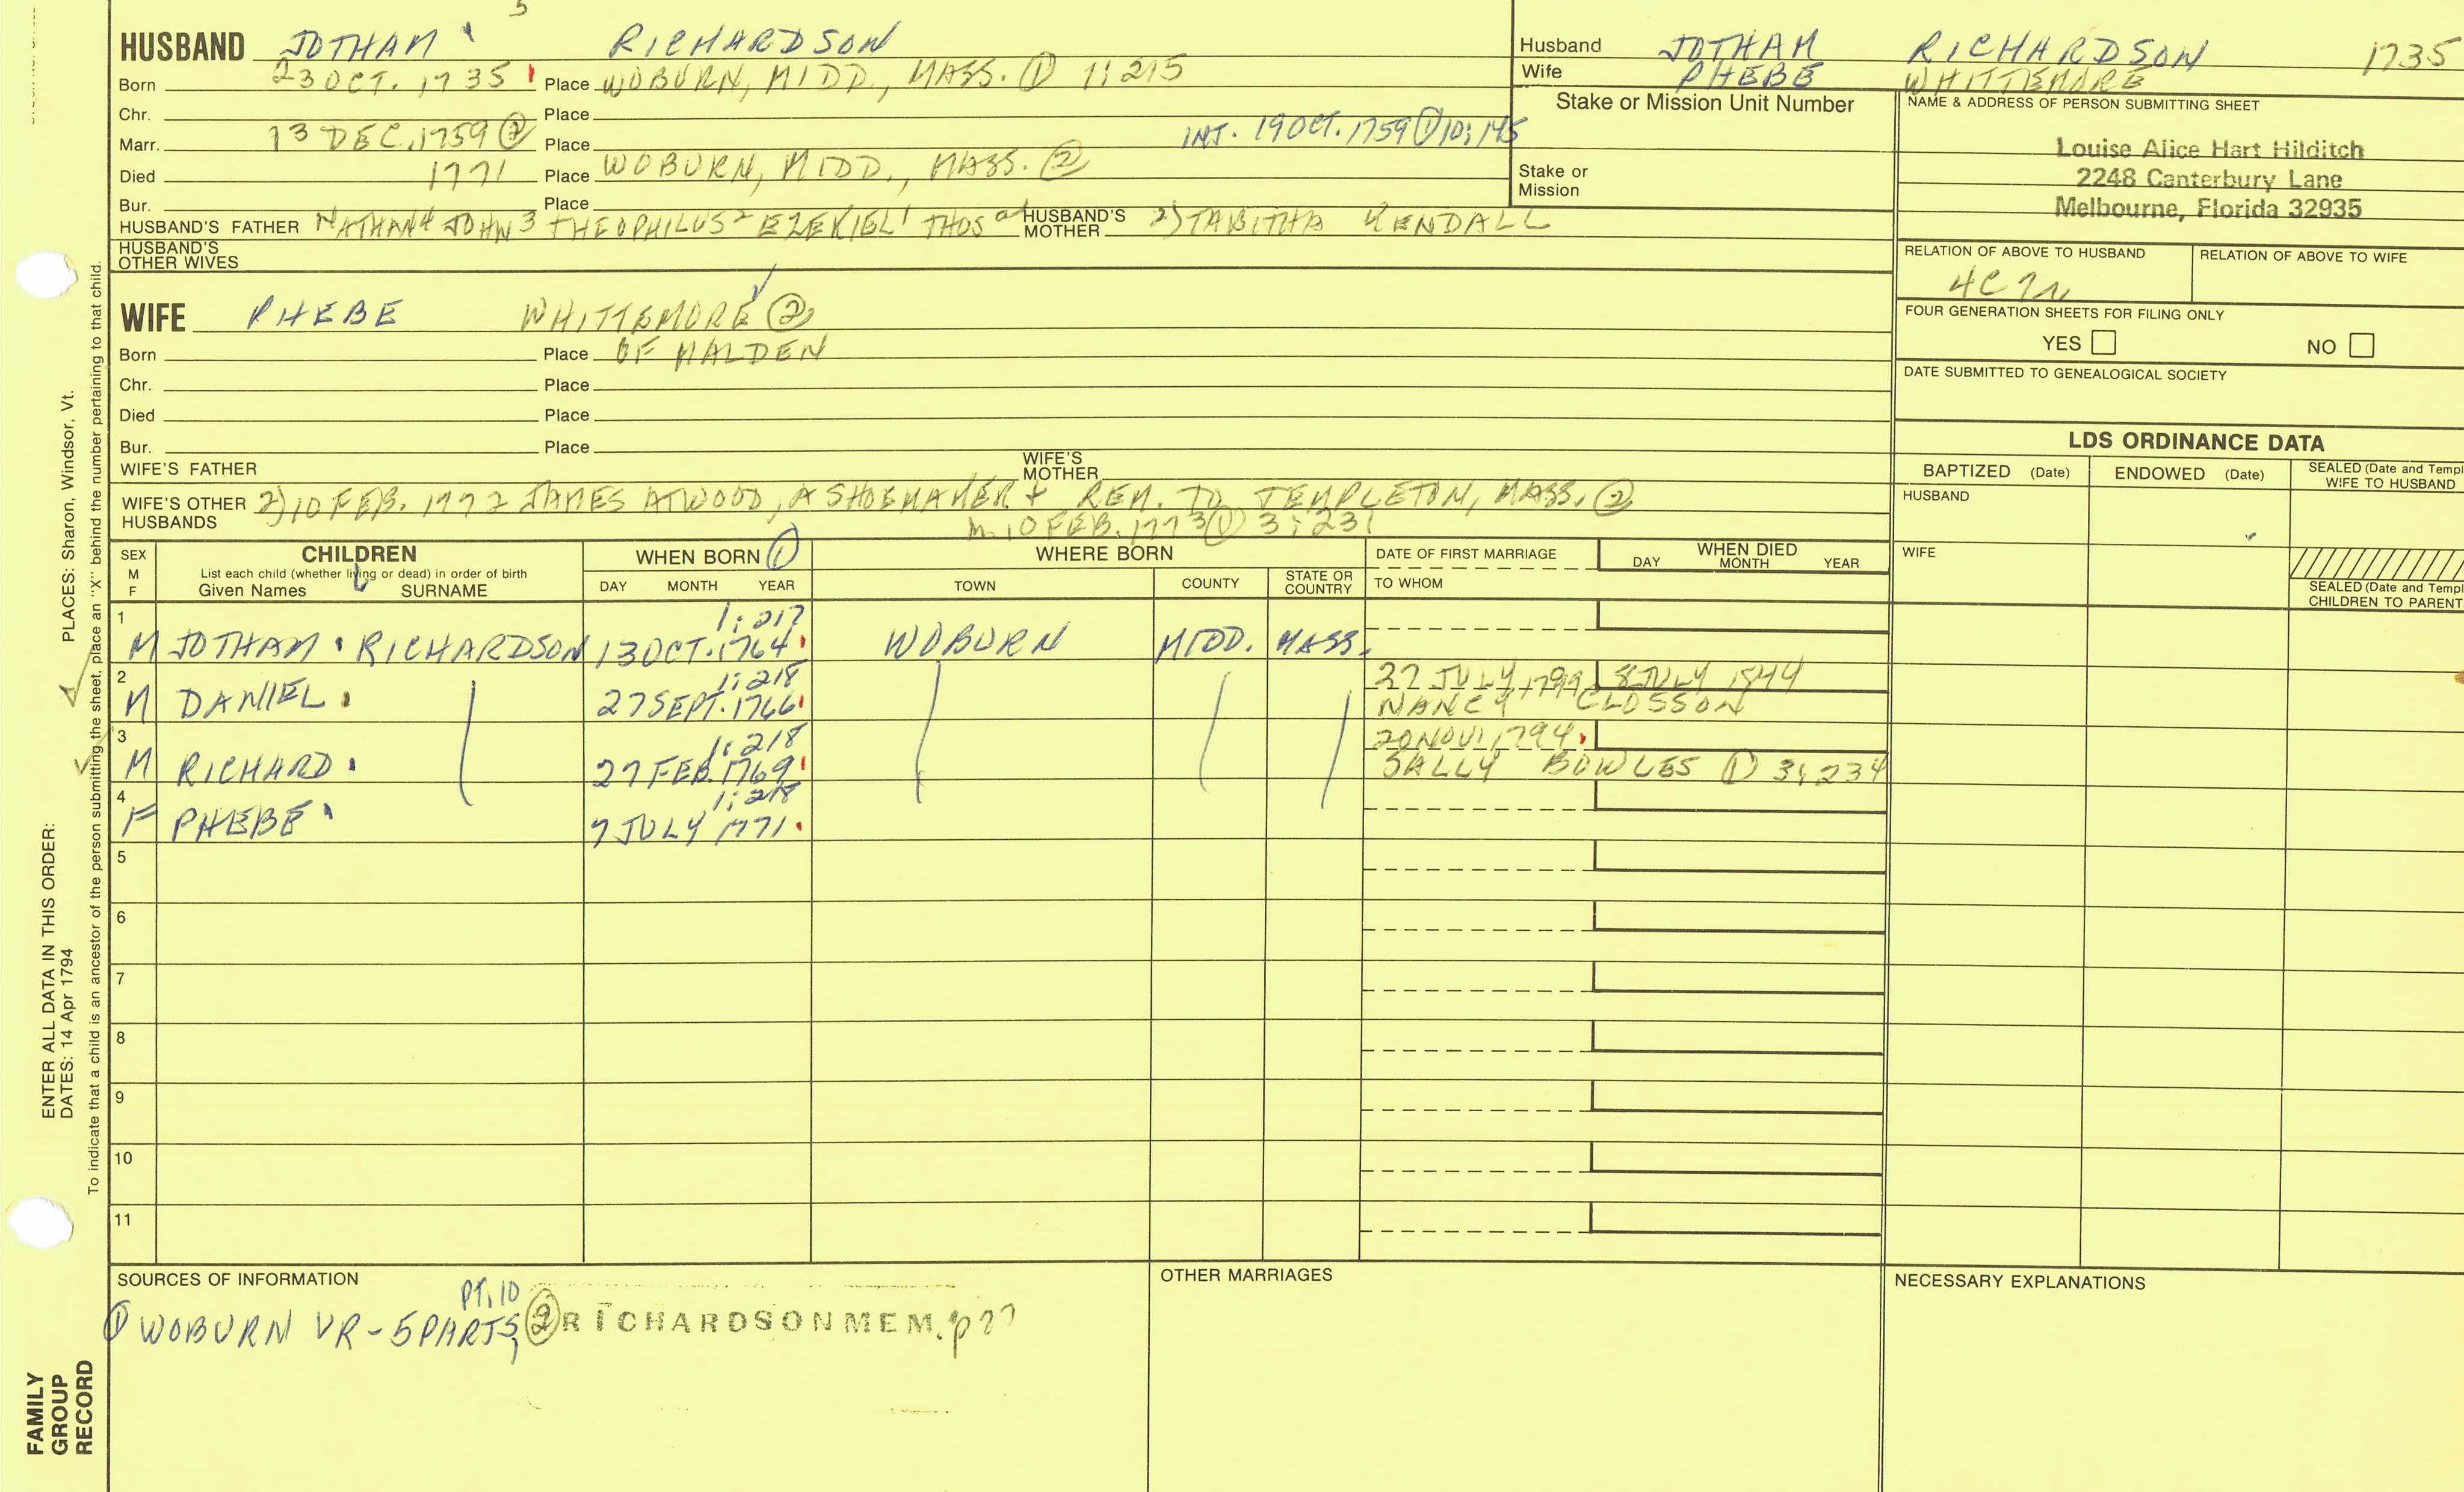 5
HUSBAND JOTHAM RICHARDSON
Born 23 OCT. 1735 Place WOBURN, MIDD., MASS. ① 1:215
Chr. Place
Marr. 13 DEC. 1759 ② Place INT. 19 OCT. 1759 ① 10:145
Died 1771 Place WOBURN, MIDD., MASS. ②
Bur. Place
HUSBAND'S FATHER NATHAN4 JOHN3 THEOPHILUS2 EZEKIEL1 THOS a HUSBAND'S MOTHER 2) TABITHA KENDALL
HUSBAND'S OTHER WIVES
WIFE PHEBE WHITTEMORE ②
Born Place OF MALDEN
Chr. Place
Died Place
Bur. Place
WIFE'S FATHER WIFE'S MOTHER
WIFE'S OTHER HUSBANDS 2) 10 FEB. 1772 JAMES ATWOOD, A SHOEMAKER + REM. TO TEMPLETON, MASS. ②
m. 10 FEB. 1773 ① 3:231
Husband JOTHAM RICHARDSON 1735
Wife PHEBE WHITTEMORE
Stake or Mission Unit Number
Stake or Mission
NAME & ADDRESS OF PERSON SUBMITTING SHEET
Louise Alice Hart Hilditch
2248 Canterbury Lane
Melbourne, Florida 32935
RELATION OF ABOVE TO HUSBAND RELATION OF ABOVE TO WIFE
4C7r
FOUR GENERATION SHEETS FOR FILING ONLY
YES NO
DATE SUBMITTED TO GENEALOGICAL SOCIETY
LDS ORDINANCE DATA
BAPTIZED (Date) ENDOWED (Date) SEALED (Date and Templ
WIFE TO HUSBAND
HUSBAND
WIFE
SEALED (Date and Templ
CHILDREN TO PARENT
SEX M F CHILDREN WHEN BORN ① WHERE BORN DATE OF FIRST MARRIAGE WHEN DIED
List each child (whether living or dead) in order of birth
Given Names SURNAME DAY MONTH YEAR TOWN COUNTY STATE OR COUNTRY TO WHOM DAY MONTH YEAR
1 1:217
M JOTHAM RICHARDSON 13 OCT. 1764 WOBURN MIDD. MASS.
2 1:218 27 JULY 1799 8 JULY 1844
M DANIEL 27 SEPT. 1766 NANCY CLOSSON
3 1:218 20 NOV 1794
M RICHARD 27 FEB. 1769 SALLY BOWLES ① 3:234
4 1:218
F PHEBE 7 JULY 1771
5
6
7
8
9
10
11
SOURCES OF INFORMATION OTHER MARRIAGES NECESSARY EXPLANATIONS
PT. 10
① WOBURN VR - 5 PARTS, ② RICHARDSON MEM. p 27
PLACES: Sharon, Windsor, Vt.
ENTER ALL DATA IN THIS ORDER:
DATES: 14 Apr 1794
To indicate that a child is an ancestor of the person submitting the sheet, place an "X" behind the number pertaining to that child.
FAMILY
GROUP
RECORD